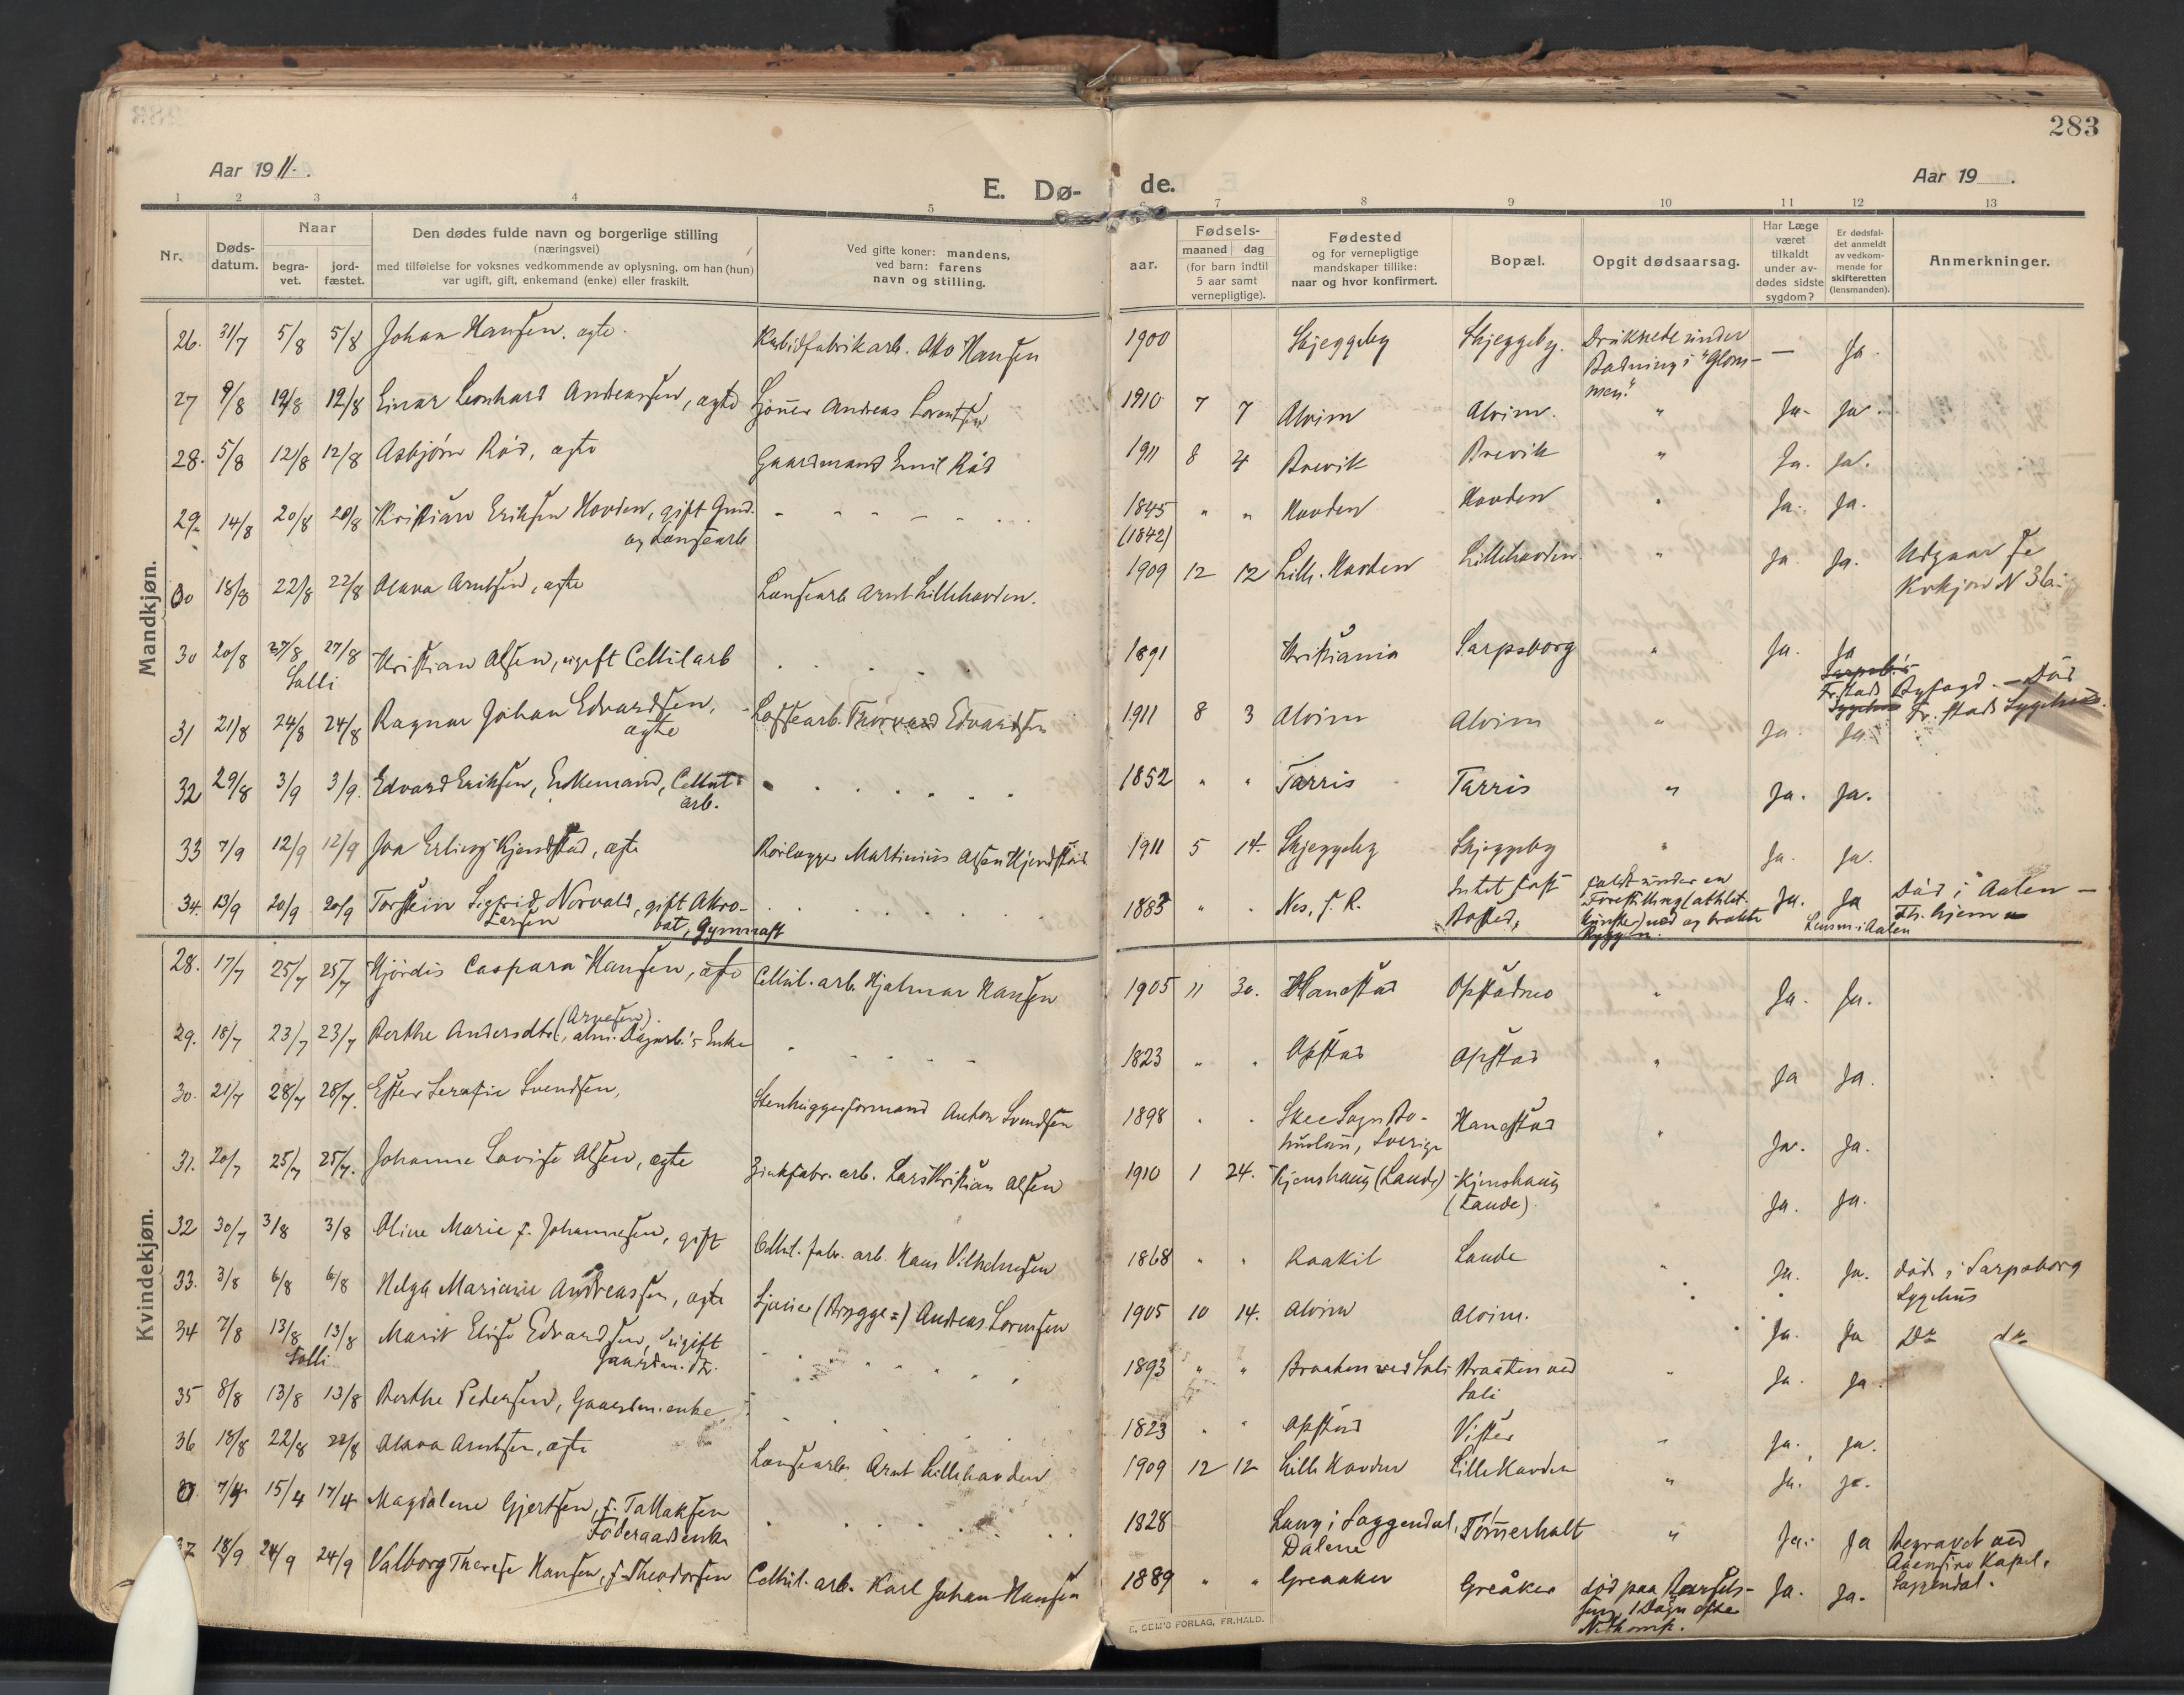 283
Aar 1911.
E. Dø-
de.
Aar 19 .
1 2 3 4 5
7 8 9 10 11 12 13
Nr.
Døds-
datum.
Naar
begra-
vet.
jord-
fæstet.
Den dødes fulde navn og borgerlige stilling
(næringsvei)
med tilføielse for voksnes vedkommende av oplysning, om han (hun)
var ugift, gift, enkemand (enke) eller fraskilt.
Ved gifte koner: mandens,
ved barn: farens
navn og stilling.
Fødsels-
aar.
maaned dag
(for barn indtil
5 aar samt
vernepligtige).
Fødested
og for vernepligtige
mandskaper tillike:
naar og hvor konfirmert.
Bopæl.
Opgit dødsaarsag.
Har Læge
været
tilkaldt
under av-
dødes sidste
sygdom?
Er dødsfal-
det anmeldt
av vedkom-
mende for
skifteretten
(lensmanden).
Anmerkninger.
Mandkjøn.
26. 31/7 5/8 5/8 Johan Hansen. ægte. Karbidfabrikarb. Hansen 1900 Skjeggeby Skjeggeby. Druknede under — Ja.
Badning i "Glom-
men."
27 9/8 12/8 12/8 Einar Leonhard Andreassen, ægte Sjouer Andreas Lorentsen 1910 7 7 Alvim Alvim. " Ja. Ja.
28. 5/8 12/8 12/8 Asbjørn Råd, ægte Gaardmand Emil Råd 1911 8 4 Brevik Brevik " Ja. Ja.
29 14/8 20/8 20/8 Kristian Eriksen Hovden, gift Grd. 1845 " " Hovden Hovden " Ja. Ja.
og Landsearb (1842)
30 18/8 22/8 22/8 Olava Arntsen, ægte Landsearb Arnt Lillehovden. 1909 12 12 Lille Hovden Lillehovden " Ja. Ja. Udgaar Se
Kvkjøn N 36.
30 20/8 27/8 27/8 Kristian Olsen, ugift Cellularb 1891 Kristiania Sarpsborg " Ja. Ja
Solli
Fr.stads Byfogd. — Død
Fr.stads Sygehus.
31 21/8 24/8 24/8 Ragnar Johan Edvardsen, Lossearb. Thorvald Edvardsen 1911 8 3 Alvim Alvim " Ja. Ja
ægte
32 29/8 3/9 3/9. Edvard Eriksen, Enkemand, Cellul- 1852 " " Tarris Tarris " Ja. Ja.
arb.
33 7/9 12/9 12/9 Erling Kjendstad, ægte Rørlægger Martinius Olsen Kjendstad 1911 5 14. Skjeggeby Skjeggeby " Ja. Ja.
34. 13/9 20/9 20/9 Torstein Sigfrid Norvald, gift Akro- 1883 Nes, f. R. Intet fast Faldt under en Ja. Ja Død i Aalen —
Larsen bat, Gymnast Bosted, Forestilling (athlet-
kunster) ned og brakk Lensm. i Aalen
Ryggen.
Kvindekjøn.
28. 17/7 25/7 25/7 Hjørdis Caspara Hansen, ægte Cellul. arb. Hjalmar Hansen 1905 11 30. Hanestad Opstadmo " Ja. Ja.
29. 18/7 23/7 23/7 Berthe Andersdtr (Arnesen), alm. Dagarb.'s Enke 1823 " " Opstad Opstad " Ja Ja.
30. 21/7 28/7 28/7. Ester Serafie Svendsen, Stenhuggerformand Anton Svendsen 1898 " " Skee Sogn Bo- Hanestad " Ja. Ja.
huslän, Sverige
31. 20/7 25/7 25/7. Johanne Lovise Olsen, ægte Zinkfabr. arb. Lars Kristian Olsen 1910 1 24. Kjenshaug (Lande) Kjenshaug " Ja. Ja.
(Lande).
32 30/7 3/8 3/8 Oline Marie f. Johannesen, gift Cellul. fabr. arb. Hans Vilhelmsen 1868 " " Raakil Lande " Ja. Ja. død i Sarpsborg
Sygehus
33. 3/8 6/8 6/8 Helga Mariane Andreassen, ægte Sjouer (Brygge=) Andreas Lorensen 1905 10 14. Alvim Alvim. " Ja. Ja Do do
34 7/8 13/8 13/8 Marit Elise Edvardsen, ugift 1893 " " Braaten ved Soli Braaten ved " Ja. Ja.
Solli Gaardm. dtr. Soli
35 8/8 13/8 13/8 Berthe Pedersen, Gaardm. enke 1823 " " Opstad Vister " Ja. Ja.
36 18/8 22/8 22/8 Olava Arntsen, ægte Landsearb. Arnt Lillehovden 1909 12 12 Lille Hovden Lille Hovden " Ja. Ja.
7/4 15/4 17/4 Magdalene Gjertsen, f. Tallaksen 1828 Laug i Soggendal, Tømmerholt " Ja. Ja Begravet ved
Føderaadsenke Dalene Kapel.
Soggendal.
37 18/9 24/9 24/9 Valborg Therese Hansen, f. Theodorsen Cellul. arb. Karl Johan Hansen 1889 " " Greaaker Greåker død paa Barsels- Ja. Ja.
seng, 1 Dag efter
Nedkomst.
E. SEM'S FORLAG, FR.HALD.